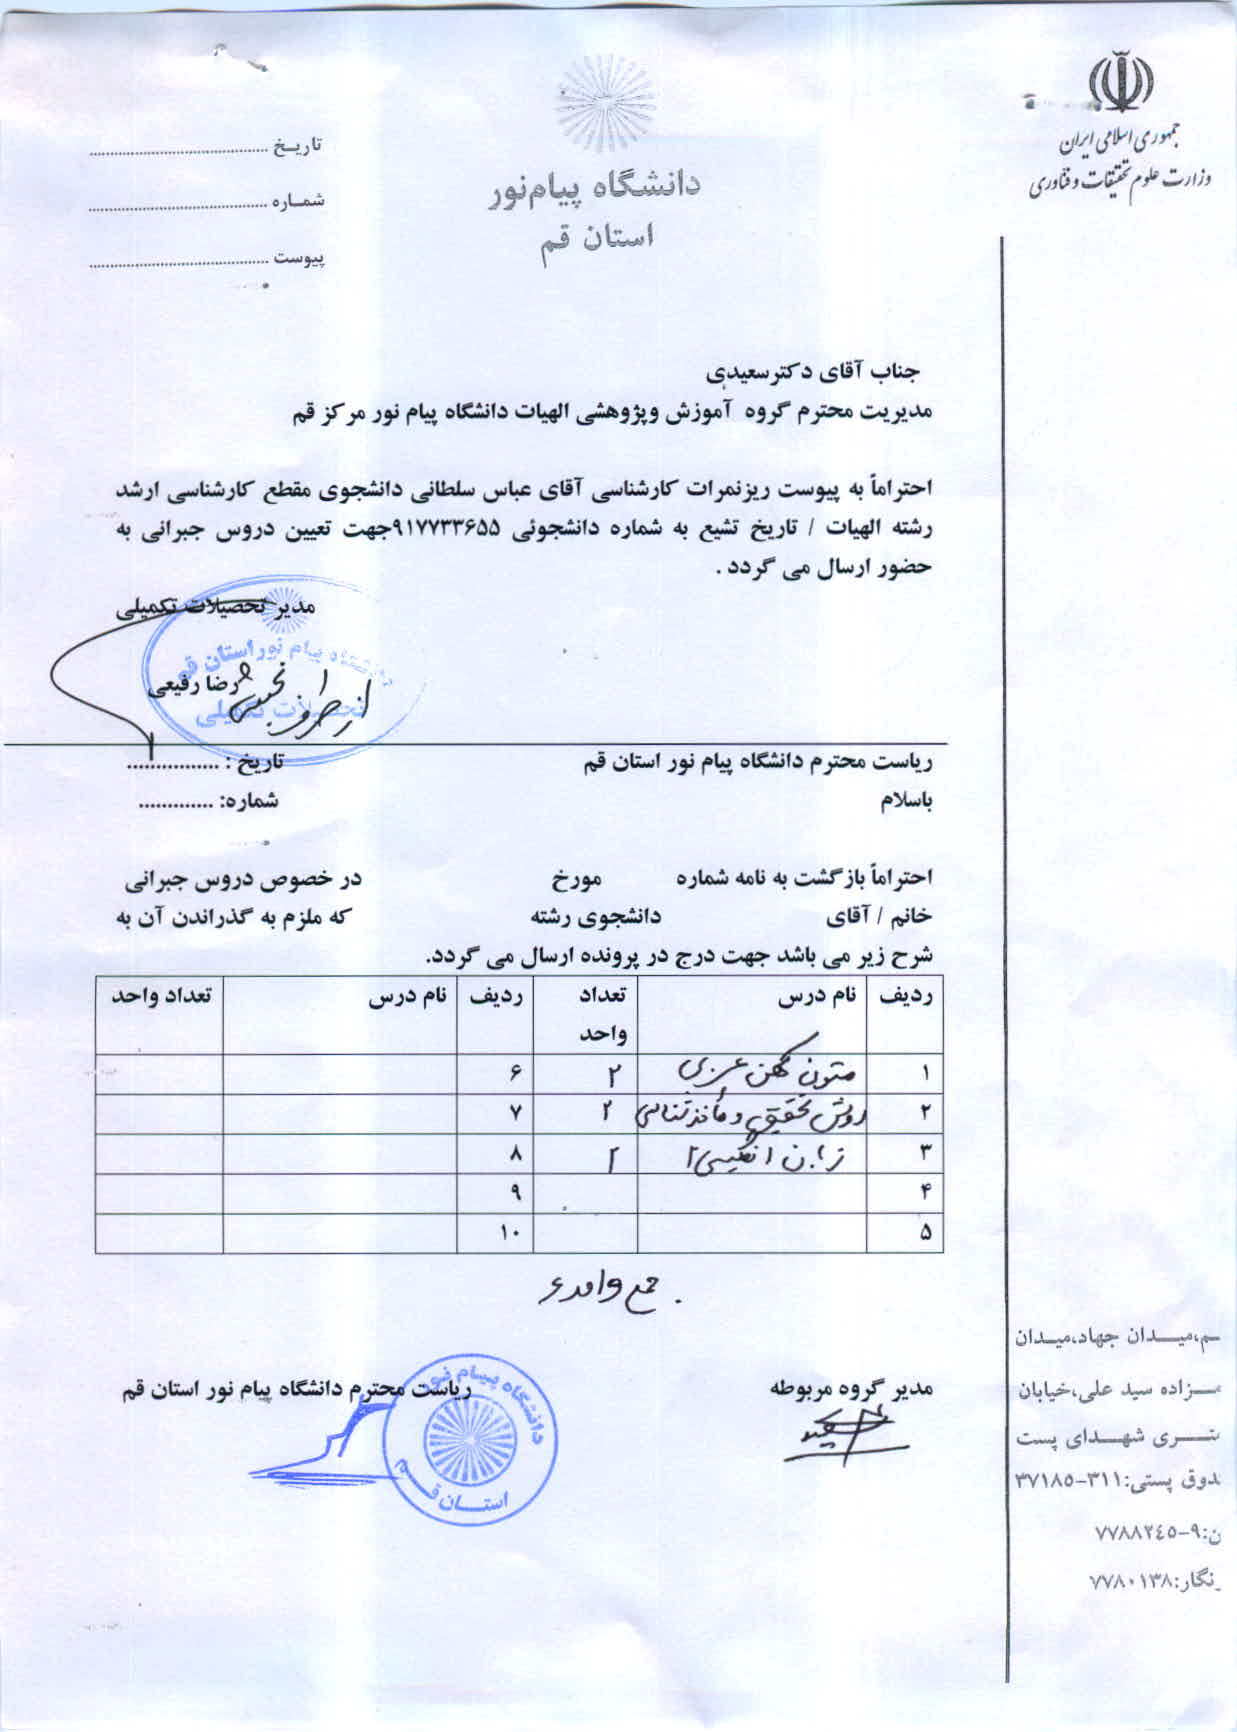 جمهوری اسلامی ایران
وزارت علوم تحقیقات و فناوری
دانشگاه پیام‌نور
استان قم
تاریـخ ............................................
شمـاره ............................................
پیوست ............................................
جناب آقای دکترسعیدی
مدیریت محترم گروه آموزش وپژوهشی الهیات دانشگاه پیام نور مرکز قم
احتراماً به پیوست ریزنمرات کارشناسی آقای عباس سلطانی دانشجوی مقطع کارشناسی ارشد
رشته الهیات / تاریخ تشیع به شماره دانشجوئی ۹۱۷۷۳۳۶۵۵جهت تعیین دروس جبرانی به
حضور ارسال می گردد .
مدیر تحصیلات تکمیلی
دانشگاه پیام نور استان قم
رضا رفیعی
تحصیلات تکمیلی
از طرف
ریاست محترم دانشگاه پیام نور استان قم تاریخ : ................
باسلام شماره: .............
احتراماً بازگشت به نامه شماره مورخ در خصوص دروس جبرانی
خانم / آقای دانشجوی رشته که ملزم به گذراندن آن به
شرح زیر می باشد جهت درج در پرونده ارسال می گردد.
ردیف نام درس تعداد واحد ردیف نام درس تعداد واحد
۱ متون کهن عربی ۲ ۶
۲ روش تحقیق و مأخذشناسی ۲ ۷
۳ زبان انگلیسی ۲ ۲ ۸
۴ ۹
۵ ۱۰
جمع واحد ۶
مدیر گروه مربوطه ریاست محترم دانشگاه پیام نور استان قم
دانشگاه پیـام نور
استـــان قــم
ـم،میـــدان جهاد،میـدان
ـــزاده سید علی،خیابان
ـتـــری شهـــدای پست
ـدوق پستی:۳۱۱-۳۷۱۸۵
ن:۹-۷۷۸۸۲٤٥
ـنگار:۷۷۸۰۱۳۸